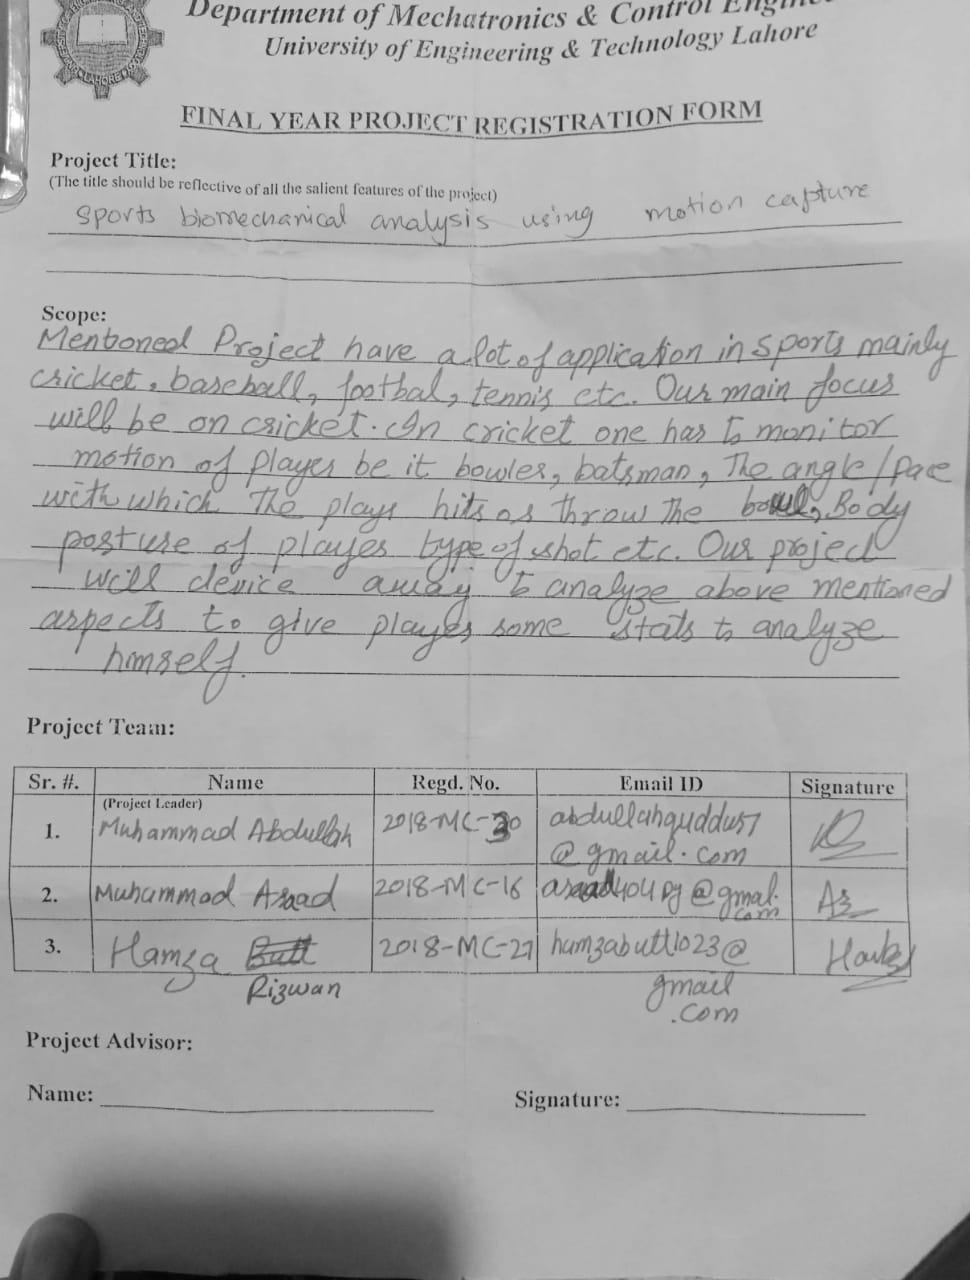 Department of Mechatronics & Control
University of Engineering & Technology Lahore
LAHORE
FINAL YEAR PROJECT REGISTRATION FORM
Project Title:
(The title should be reflective of all the salient features of the project)
Sports biomechanical analysis using motion capture
Scope:
Mentioned Project have a lot of application in sports mainly
cricket, baseball, footbal, tennis etc. Our main focus
will be on cricket. In cricket one has to monitor
motion of player be it bowler, batsman, The angle/pace
with which The player hits or throw The Body
posture of player type of shot etc. Our project
will device away to analyze above mentioned
aspects to give player some stats to analyze
himself.
Project Team:
Sr. #. Name Regd. No. Email ID Signature
(Project Leader)
1. Muhammad Abdullah 2018-MC-30 abdullahquddus7
@gmail.com
2. Muhammad Asaad 2018-MC-16 @gmal.
com
3. Hamza Butt 2018-MC-27 hamzabutt1023@
Rizwan gmail
.com
Project Advisor:
Name: Signature: